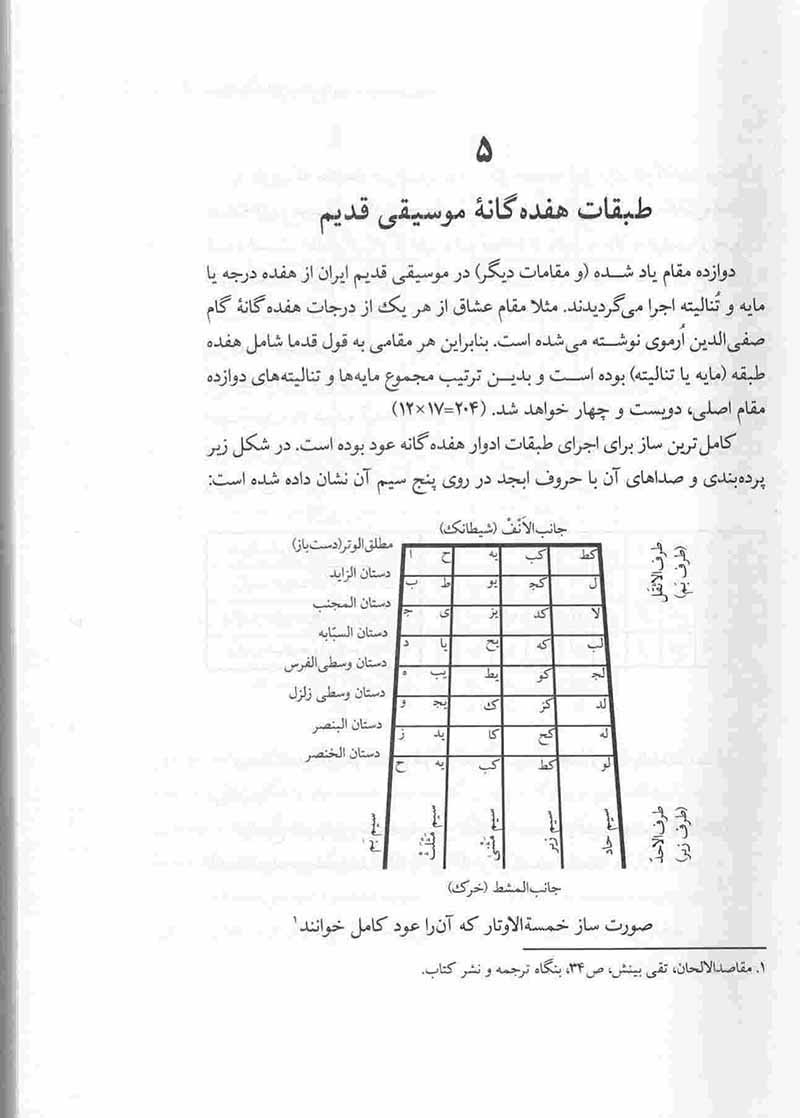 ۵
طبقات هفده‌گانهٔ موسیقی قدیم
دوازده مقام یاد شده (و مقامات دیگر) در موسیقی قدیم ایران از هفده درجه یا
مایه و تُنالیته اجرا می‌گردیدند. مثلا مقام عشاق از هر یک از درجات هفده‌گانهٔ گام
صفی‌الدین اُرموی نوشته می‌شده است. بنابراین هر مقامی به قول قدما شامل هفده
طبقه (مایه یا تنالیته) بوده است و بدین ترتیب مجموع مایه‌ها و تنالیته‌های دوازده
مقام اصلی، دویست و چهار خواهد شد. (۲۰۴=۱۷×۱۲)
کامل‌ترین ساز برای اجرای طبقات ادوار هفده‌گانه عود بوده است. در شکل زیر
پرده‌بندی و صداهای آن با حروف ابجد در روی پنج سیم آن نشان داده شده است:
جانب‌الاَنْفْ (شیطانک)
طرف‌الاثقَل
(طرف بَم)
کط کب یه ح ا مطلق‌الوتر(دست‌باز)
ل کج یو ط ب دستان الزاید
لا کد یز ی ج دستان المجنب
لب که یح یا د دستان السبّابه
لج کو یط یب ه دستان وسطی‌الفرس
لد کز ک یج و دستان وسطی زلزل
له کح کا ید ز دستان البنصر
لو کط کب یه ح دستان الخنصر
طرف‌الاحدّ
(طرف زیر)
سیم حاد سیم زیر سیم مَثْنی سیم مَثْلَثْ سیم بَم
جانب‌المشط (خرک)
صورت ساز خمسةالاوتار که آن‌را عود کامل خوانند۱
۱. مقاصدالالحان، تقی بینش، ص۳۴، بنگاه ترجمه و نشر کتاب.